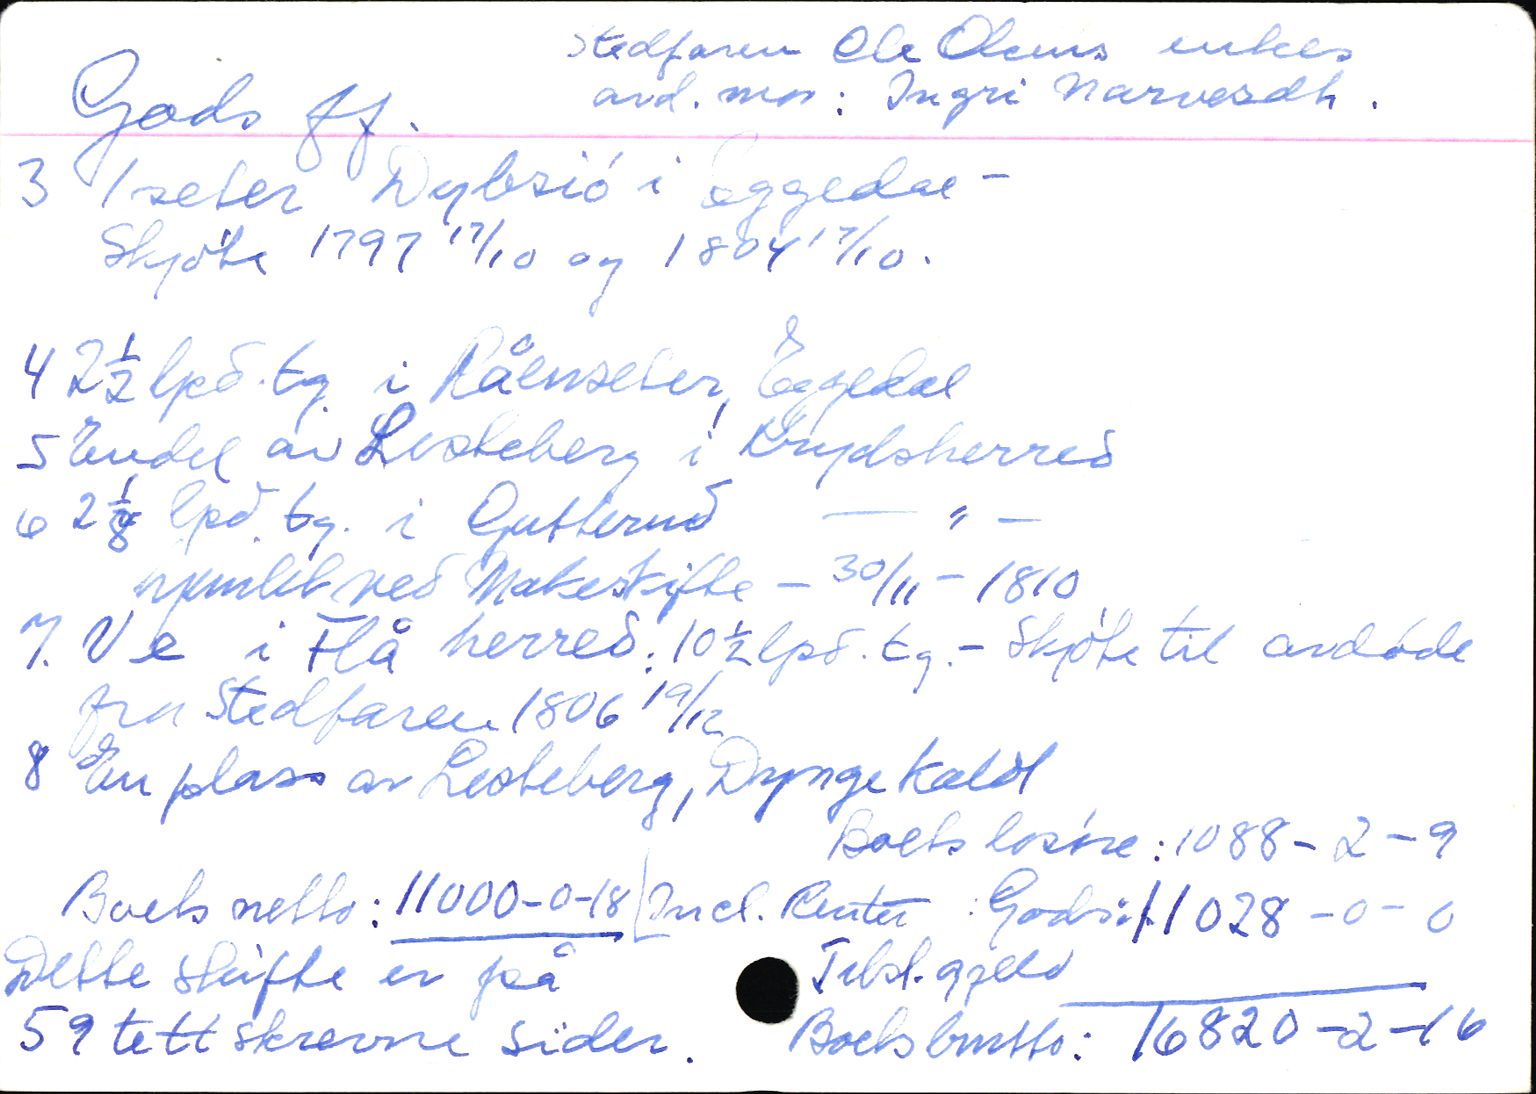 Stedfaren Ole Olsens enkes
avd. mor: Ingri Narvesdtr.
Gods ff.
3 1 seter Dybsió i Eggedal -
Skjóte 1797 17/10 og 1804 17/10.
4 2 1/2 lpd. tg. i Råenseter, Eggedal
5 Endel av Lesteberg i Krydsherred
6 2 1/8 lpd. tg. i Gutterud — " —
Makeskifte - 30/11 - 1810
7. Ve i Flå herred: 10 1/2 lpd. tg. - Skjóte til avdóde
fra Stedfaren 1806 19/12
8 En plass av Lesteberg, Dynge kaldt
Boets losóre: 1088 - 2 - 9
Boets netto: 11000-0-18 Incl. Renter Gods: 11028 - 0 - 0
Dette skifte er på Tilst. gjeld
59 tett skrevne sider. Boets brutto: 16820 - 2 - 16